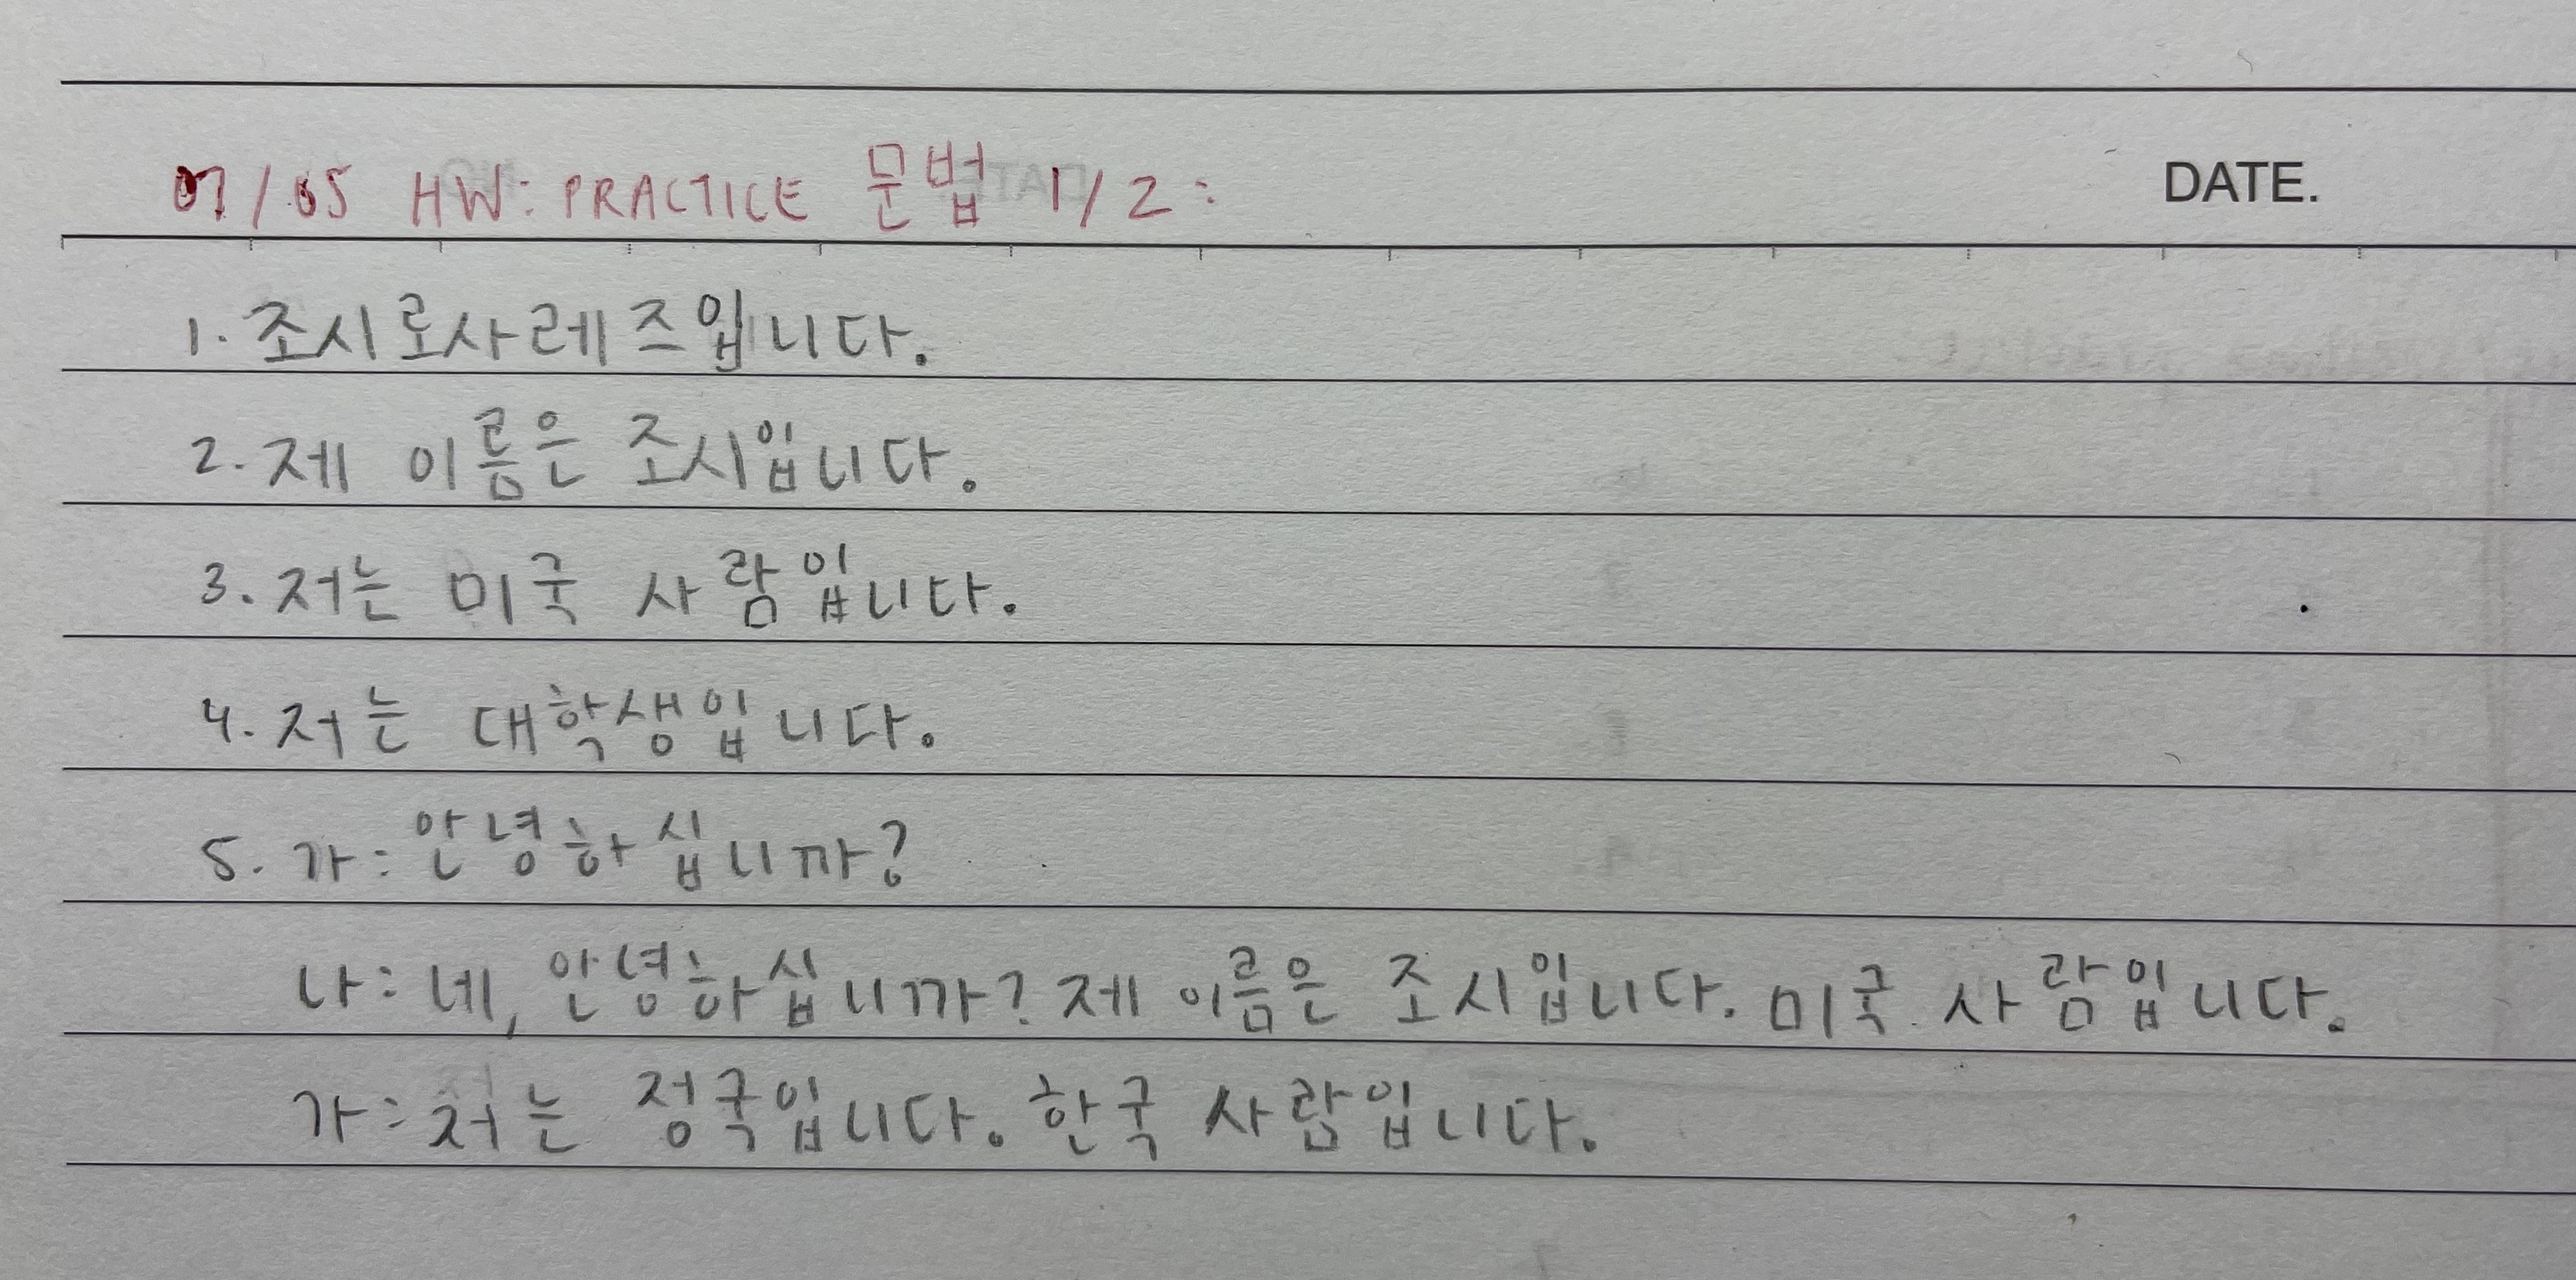 07/05 HW: PRACTICE 문법 1/2:
DATE.
1. 조시로사레즈입니다.
2. 제 이름은 조시입니다.
3. 저는 미국 사람입니다.
4. 저는 대학생입니다.
5. 가: 안녕하십니까?
나: 네, 안녕하십니까? 제 이름은 조시입니다. 미국 사람입니다.
가: 저는 정국입니다. 한국 사람입니다.